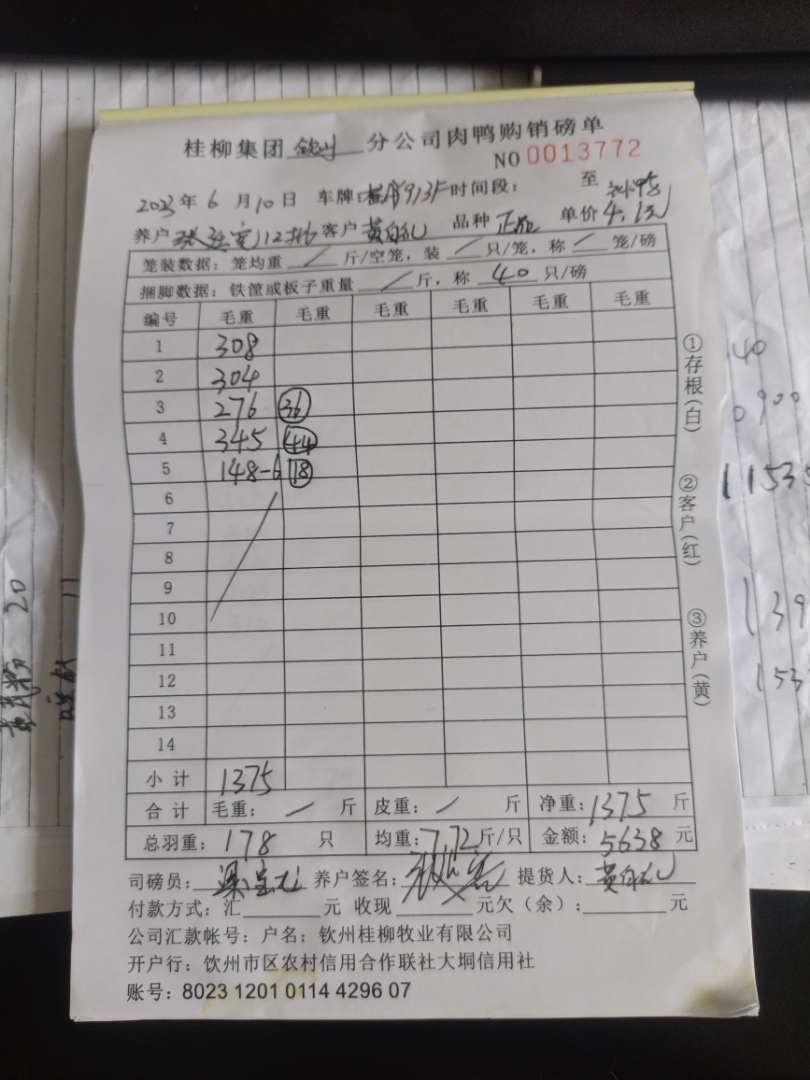 桂柳集团 钦州 分公司肉鸭购销磅单
NO 0013772
2023年6月10日 车牌 913F 时间段: 至
养户 12批 客户 黄 品种 正 单价 4.1元
笼装数据: 笼均重 / 斤/空笼, 装 / 只/笼, 称 / 笼/磅
捆脚数据: 铁筐或板子重量 / 斤, 称 40 只/磅
编号 毛重 毛重 毛重 毛重 毛重 毛重
1 308
2 304
3 276 36
4 345 44
5 148-6 18
6
7
8
9
10
11
12
13
14
小计 1375
合计 毛重: / 斤 皮重: / 斤 净重: 1375 斤
总羽重: 178 只 均重: 7.72 斤/只 金额: 5638 元
司磅员: 养户签名: 提货人: 黄
付款方式: 汇 元 收现 元欠(余): 元
公司汇款帐号: 户名: 钦州桂柳牧业有限公司
开户行: 饮州市区农村信用合作联社大垌信用社
账号: 8023 1201 0114 4296 07
①存根(白)
②客户(红)
③养户(黄)
40
0900
11535
139
1535
20
11